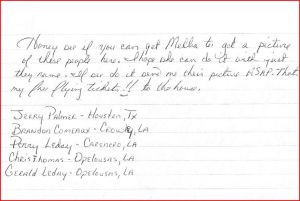 Honey see if you can get Mella to get a picture
of these people here. I hope she can do it with just
they name. If she do it send me their picture ASAP. That's
my free flying tickets!! to the house.
Jerry Palmer - Houston, Tx
Brandon Comeaux - Crowley, LA
Perry Leday - Carencro, LA
Chris Thomas - Opelousas, LA
Gerald Leday - Opelousas, LA